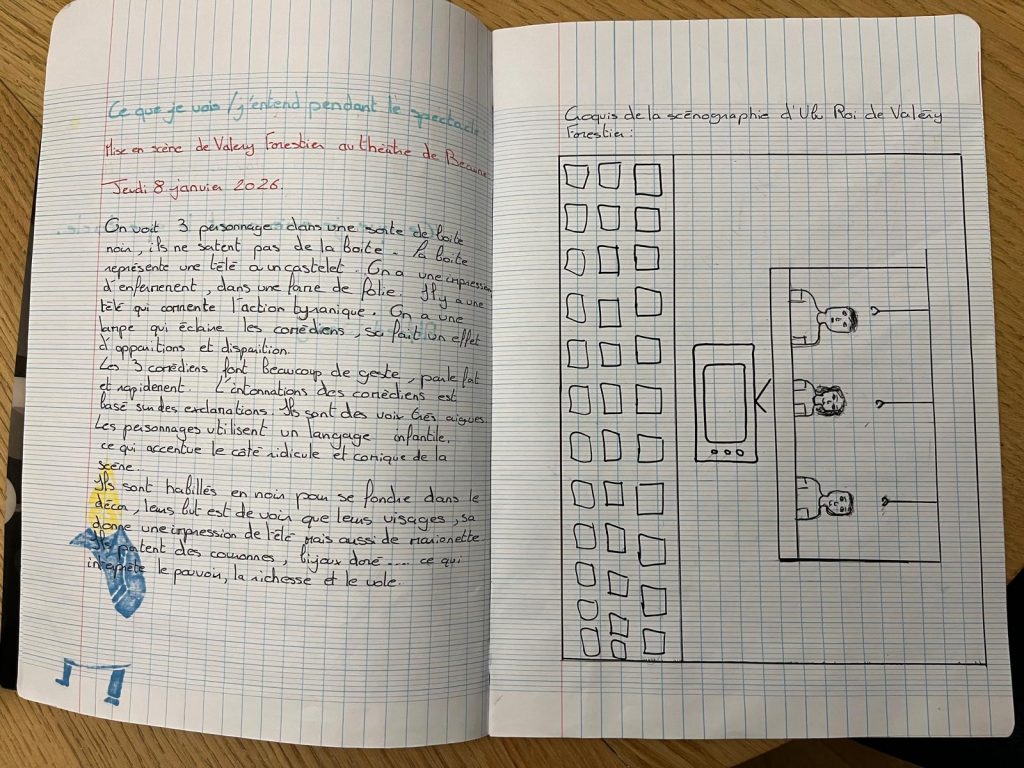 Ce que je vois / j'entend pendant le spectacle
Mise en scène de Valery Forestier au théâtre de Beaune
Jeudi 8 janvier 2026.
On voit 3 personnages dans une sorte de boite
noir, ils ne sortent pas de la boite. la boite
représente une télé ou un castelet. On a une impression
d'enfermement, dans une forme de folie. Il y a une
télé qui commente l'action tyranique. On a une
lampe qui éclaire les comédiens, sa fait un effet
d'apparitions et disparition.
Les 3 comédiens font beaucoup de geste, parle fort
et rapidement. L'intonnations des comédiens est
basé sur des exclamations. Ils ont des voix très aigues.
Les personnages utilisent un langage infantile,
ce qui accentue le coté ridicule et comique de la
scène.
Ils sont habillés en noir pour se fondre dans le
décor, leurs but est de voir que leurs visages, sa
donne une impression de télé mais aussi de marionette
Ils portent des couronnes, bijoux doré .... ce qui
interprète le pouvoir, la richesse et le vole.
Croquis de la scénographie d'Ubu Roi de Valéry
Forestier :